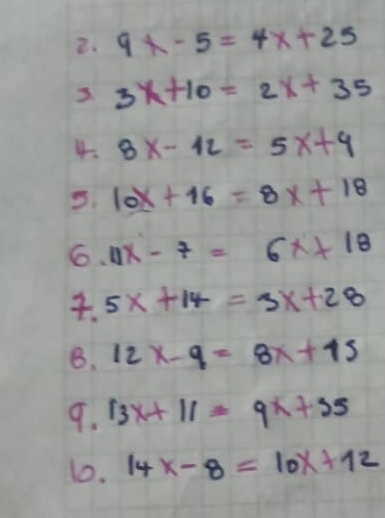 2. 9x - 5 = 4x + 25
3. 3x + 10 = 2x + 35
4. 8x - 12 = 5x + 9
5. 10x + 16 = 8x + 18
6. 11x - 7 = 6x + 18
7. 5x + 14 = 3x + 28
8. 12x - 9 = 8x + 15
9. 13x + 11 = 9x + 35
10. 14x - 8 = 10x + 12